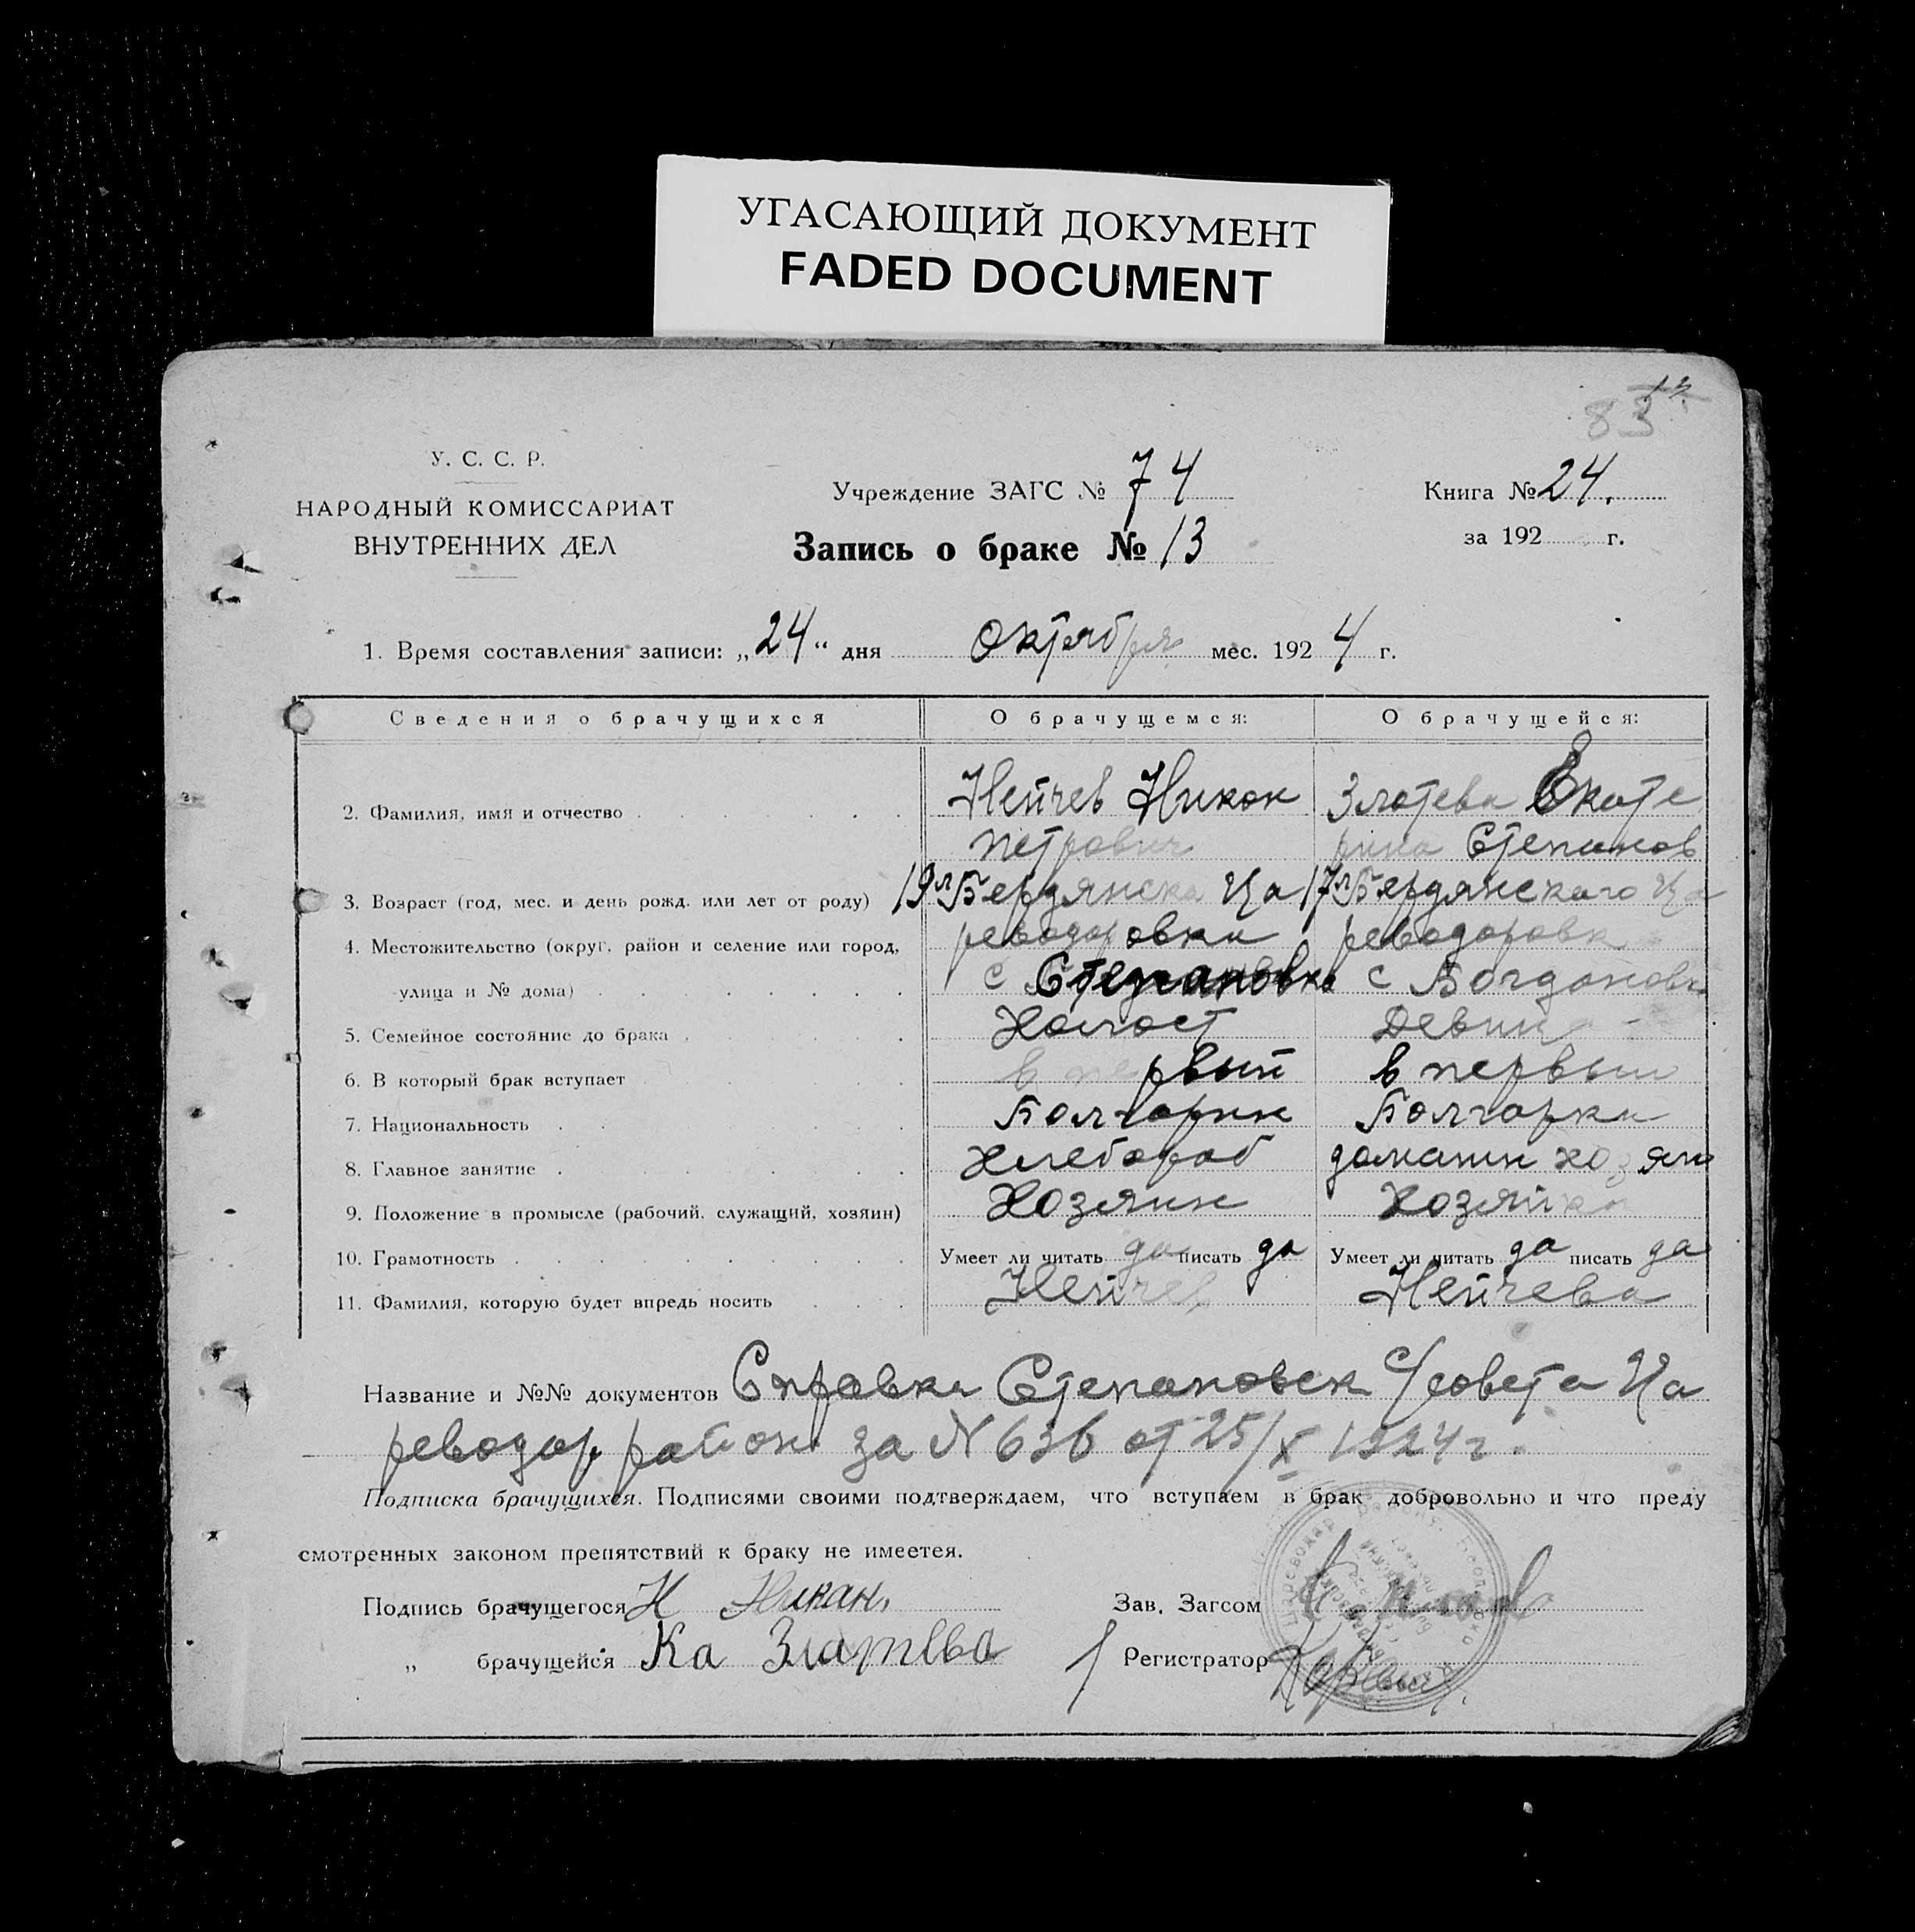 УГАСАЮЩИЙ ДОКУМЕНТ
FADED DOCUMENT
83
У. С. С. Р.
НАРОДНЫЙ КОМИССАРИАТ
ВНУТРЕННИХ ДЕЛ
Учреждение ЗАГС № 74
Запись о браке № 13
Книга № 24.
за 192 г.
1. Время составления записи: „24“ дня октября мес. 1924 г.
Сведения о брачущихся О брачущемся: О брачущейся:
2. Фамилия, имя и отчество Нейчев Никон Златева Екате
Петрович рина Степанов
3. Возраст (год, мес. и день рожд. или лет от роду) 19л Бердянска Ца 17л Бердянского Ца
4. Местожительство (округ, район и селение или город, реводаровки реводаровк
улица и № дома) с Степановка с Богдановка
5. Семейное состояние до брака Холост Девица
6. В который брак вступает в первый в первый
7. Национальность Болгарин Болгарка
8. Главное занятие Хлебороб домашн хозяй
9. Положение в промысле (рабочий, служащий, хозяин) Хозяин Хозяйка
10. Грамотность Умеет ли читать да писать да Умеет ли читать да писать да
11. Фамилия, которую будет впредь носить Нейчев Нейчева
Название и №№ документов Справка Степановск с/совета Ца
реводар район за N 636 от 25/X 1924 г.
Подписка брачущихся. Подписями своими подтверждаем, что вступаем в брак добровольно и что преду
смотренных законом препятствий к браку не имеетея.
Подпись брачущегося Н Никан, Зав. Загсом
„ брачущейся Ка Златева Регистратор